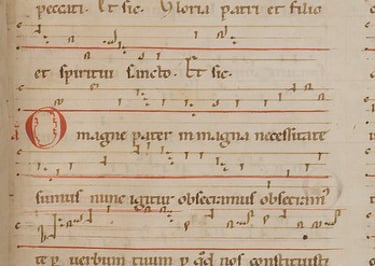 peccati. Et sic. Gloria patri et filio
et spiritui sancto. Et sic.
O magne pater in magna necessitate
sumus nunc igitur obsecramus obsecram̄
te ꝑ verbum tuum ꝑ qd̄ nos constituisti